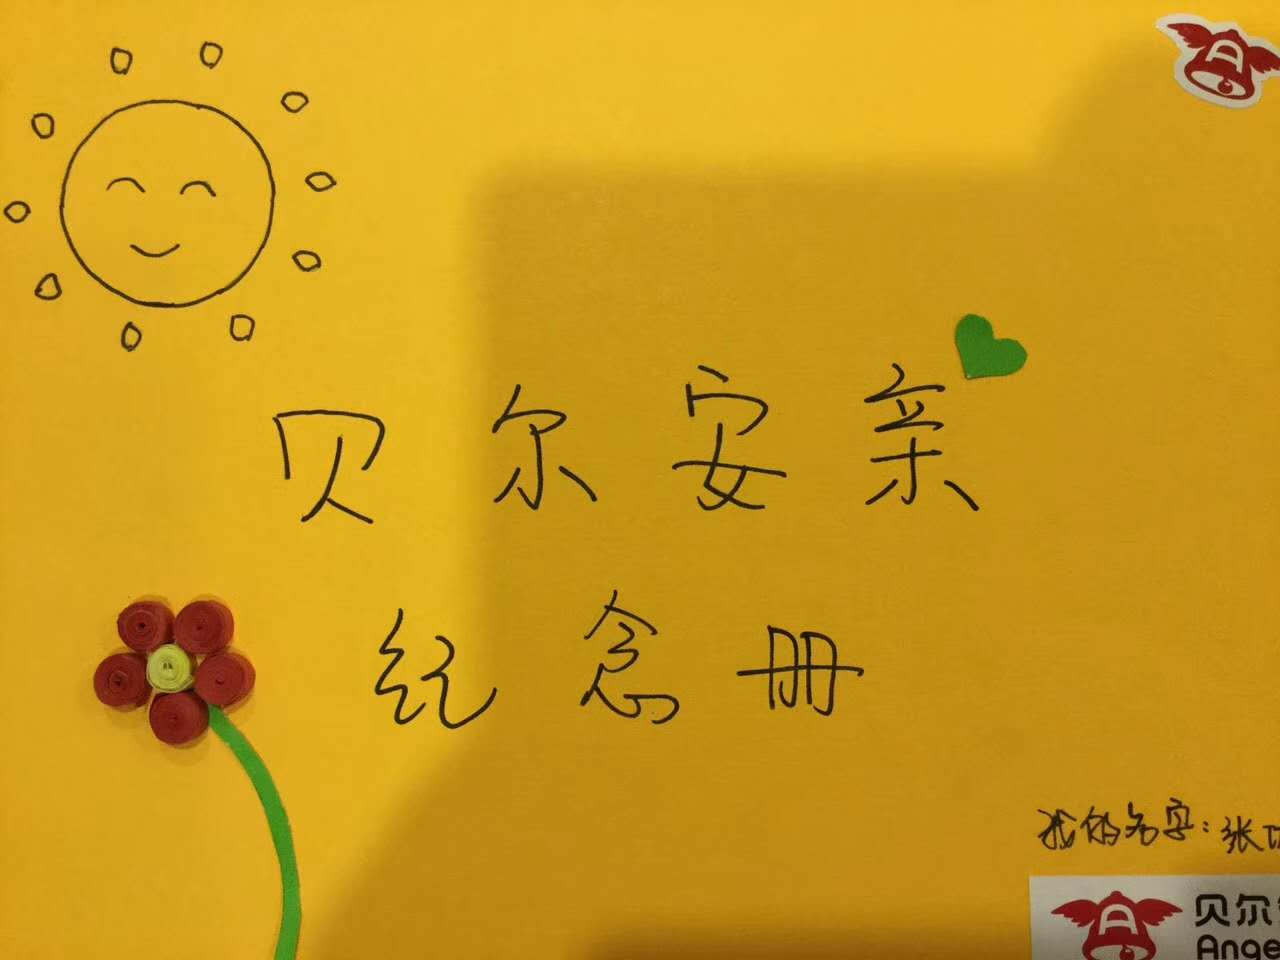 贝尔安亲
纪念册
我的名字：张
贝尔
Ange